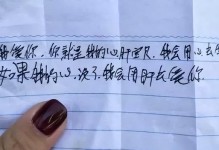 我爱你,你就是我的心肝宝贝,我会用心去
如果我的心没了,我会用肝去爱你